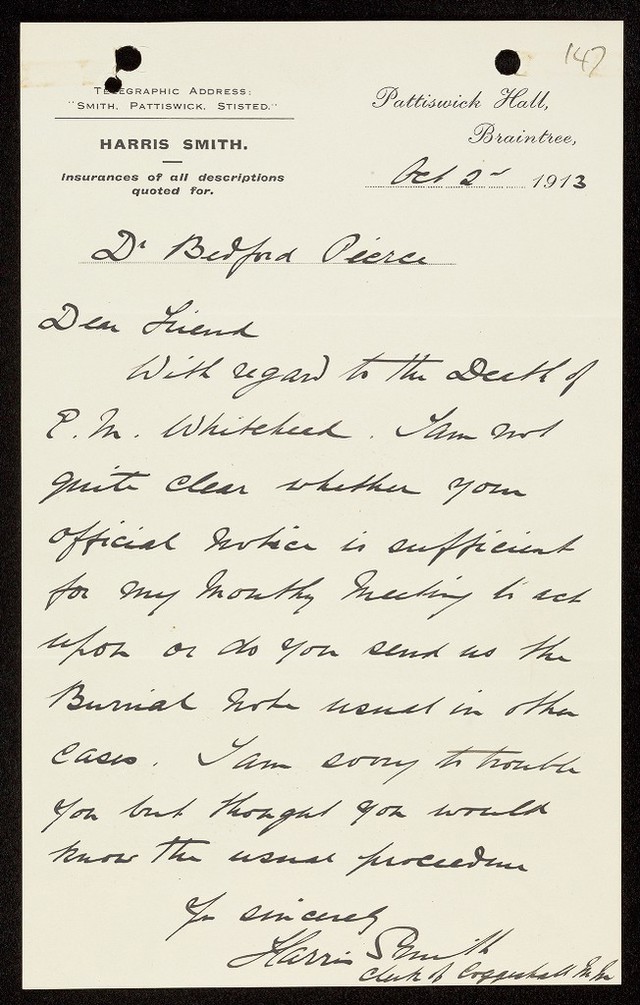 147
TELEGRAPHIC ADDRESS:
"SMITH. PATTISWICK. STISTED."
HARRIS SMITH.
Insurances of all descriptions
quoted for.
Pattiswick Hall,
Braintree,
Oct 2nd 1913
Dr Bedford Pierce
Dear Friend
With regard to the Death of
E. M. Whitehead. I am not
quite clear whether your
official notice is sufficient
for my Monthly Meeting to act
upon or do you send us the
Burial Note usual in other
cases. I am sorry to trouble
you but thought you would
know the usual proceedure
Yr sincerely
Harris Smith
Clerk of Coggeshall M.M.